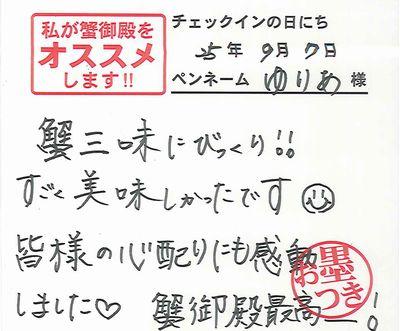 私が蟹御殿を
オススメ
します!!
チェックインの日にち
25年9月7日
ペンネーム ゆりあ 様
蟹三味にびっくり!!
すごく美味しかったです☺
皆様の心配りにも感動
しました♡ 蟹御殿最高ー!
お墨つき